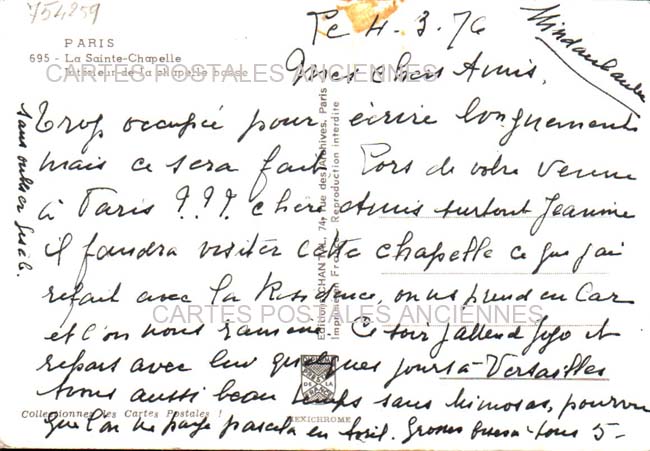 754259
PARIS
695 - La Sainte-Chapelle
Intérieur de la chapelle basse
CARTES POSTALES ANCIENNES
le 4.3.76
mes chers Amis,
Trop occupée pour écrire longuement
mais ce sera fait lors de votre venue
à Paris ??? chers Amis surtout Jeanine
il faudra visiter cette chapelle ce que j'ai
refait avec la Résidence, on ns prend en Car
et l'on nous ramène. Ce soir j'attend Jojo et
repart avec lui quelques jours à Versailles
Avons aussi beau temps sans mimosas, pourvu
que l'on ne paye pas cela en Avril. Grosses bises à tous 5 -
sans oublier Gisèle.
CARTES POSTALES ANCIENNES
Editions CHANTAL, 74, rue des Archives, Paris
Imprimé en France - Reproduction interdite
MEXICHROME
Collectionnez les Cartes Postales !